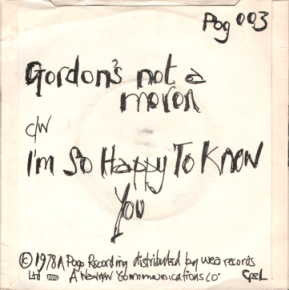 Pog 003
Gordon's not a
moron
c/w
I'm So Happy To Know
You
© 1978 A Pogo Recording distributed by wea records
Ltd A Communications Co.